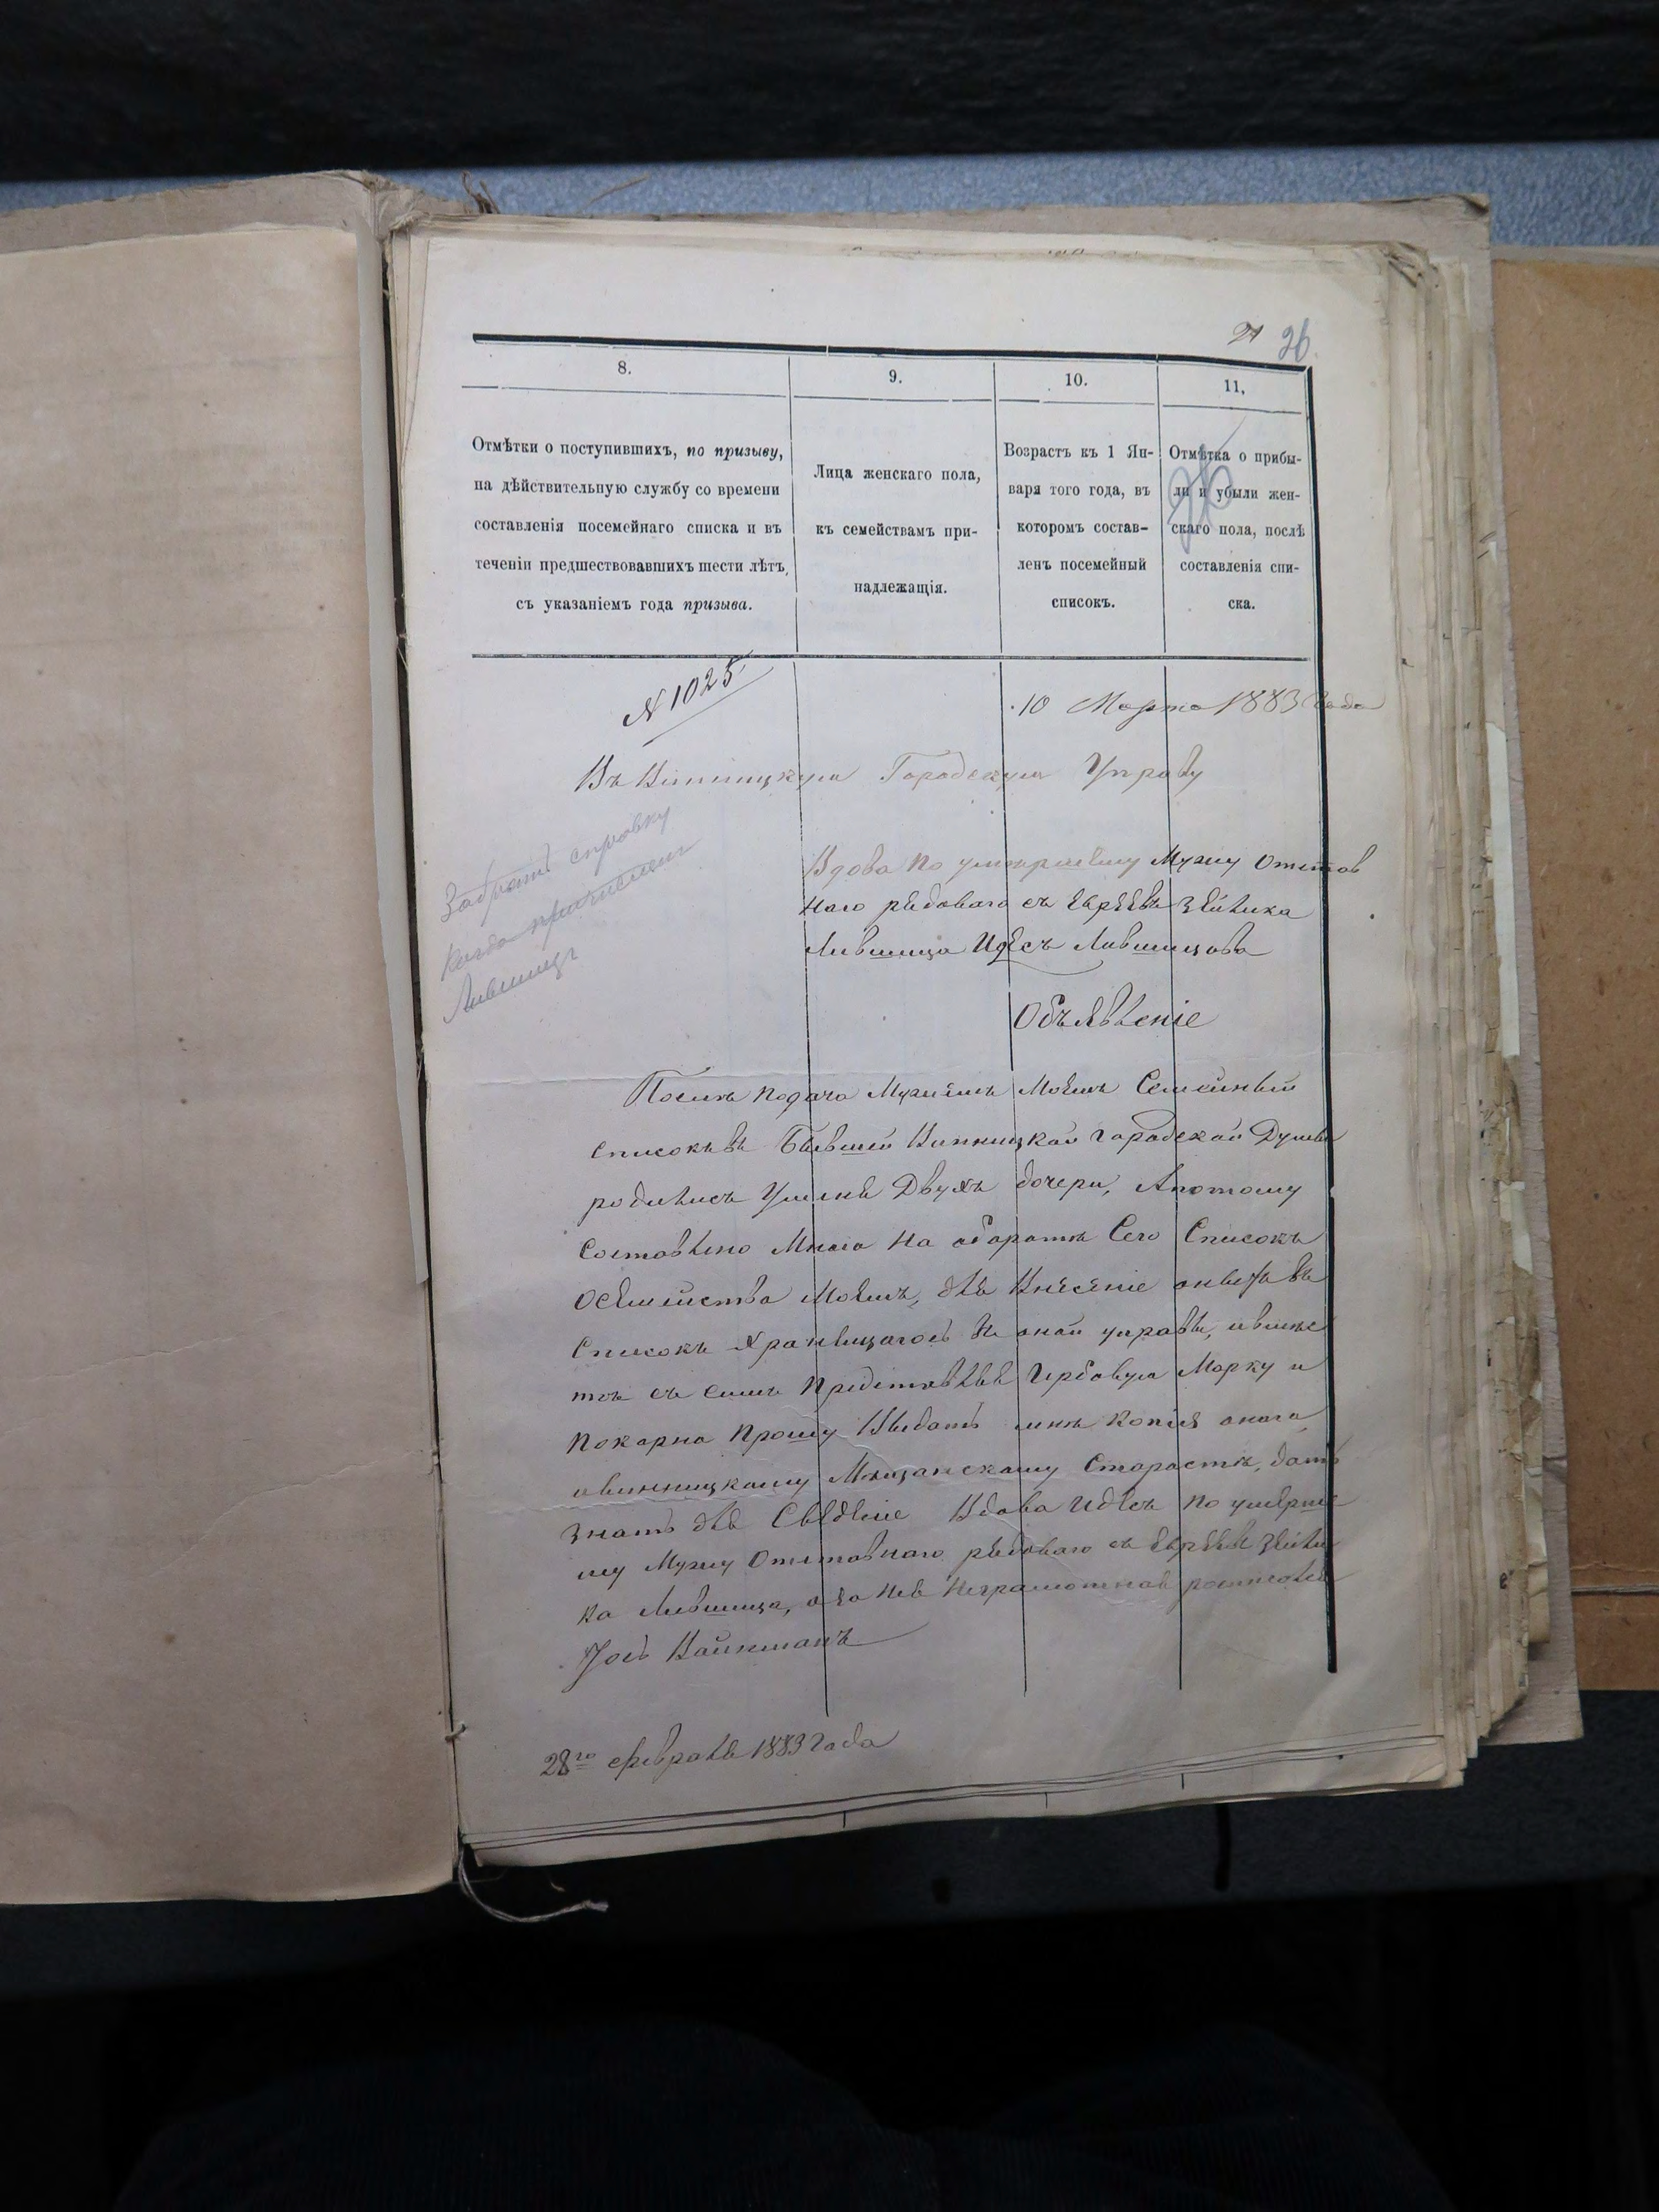 21 26
8.
9.
10.
11.
Отмѣтки о поступившихъ, по призыву,
на дѣйствительную службу со времени
составленія посемейнаго списка и въ
теченіи предшествовавшихъ шести лѣтъ,
съ указаніемъ года призыва.
Лица женскаго пола,
къ семействамъ при-
надлежащія.
Возрастъ къ 1 Ян-
варя того года, въ
которомъ состав-
ленъ посемейный
списокъ.
Отмѣтка о прибы-
ли и убыли жен-
скаго пола, послѣ
составленія спи-
ска.
26
N 1025
10 Марта 1883 Года
Въ Винницкую Городскую Управу
справку
когда причислен
Лившицъ
Вдова по умершему Мужу Отстав
наго рядоваго съ Евреевъ Зейлика
Лившица Идесъ Лившицова
Объявленіе
Послѣ подача Мужемъ Моемъ Семейный
списокъ въ Бывшей Винницкой городской Думы
родились Умине Двухъ дочери, Апотому
Составлено Мною на оборотѣ Сего Списокъ
Осемейства Моемъ, для Внесеніе оныхъ въ
Списокъ Хранящагось въ оной управѣ, ивмѣс
тѣ съ симъ Представляя Гербовую Марку и
покорно прошу Выдать мнѣ копія оного,
ивинницкому Мещанскому Старостѣ, дать
знать для Сведеніе Вдова Идесъ по умерше
му Мужу Отставнаго рядоваго съ Евреевъ Зейли
ка Лившица, аза нея Неграмотной
Вайнманъ
28го февраля 1883 Года